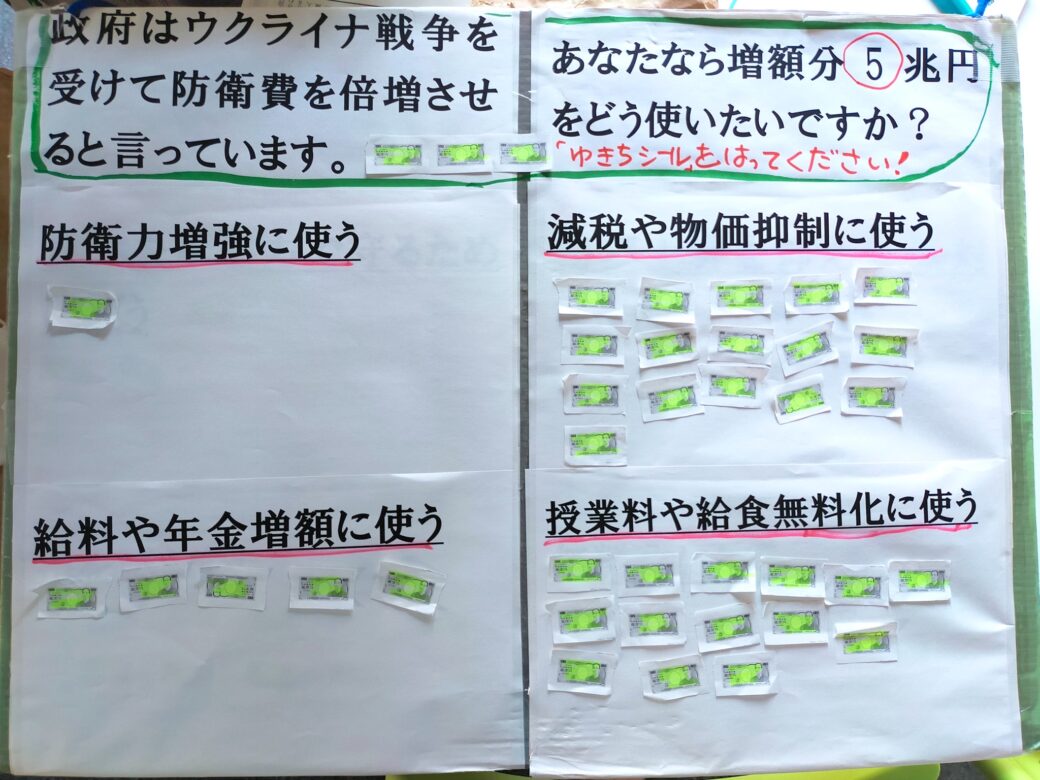 政府はウクライナ戦争を
受けて防衛費を倍増させ
ると言っています。
あなたなら増額分5兆円
をどう使いたいですか？
「ゆきちシール」をはってください！
防衛力増強に使う
減税や物価抑制に使う
給料や年金増額に使う
授業料や給食無料化に使う